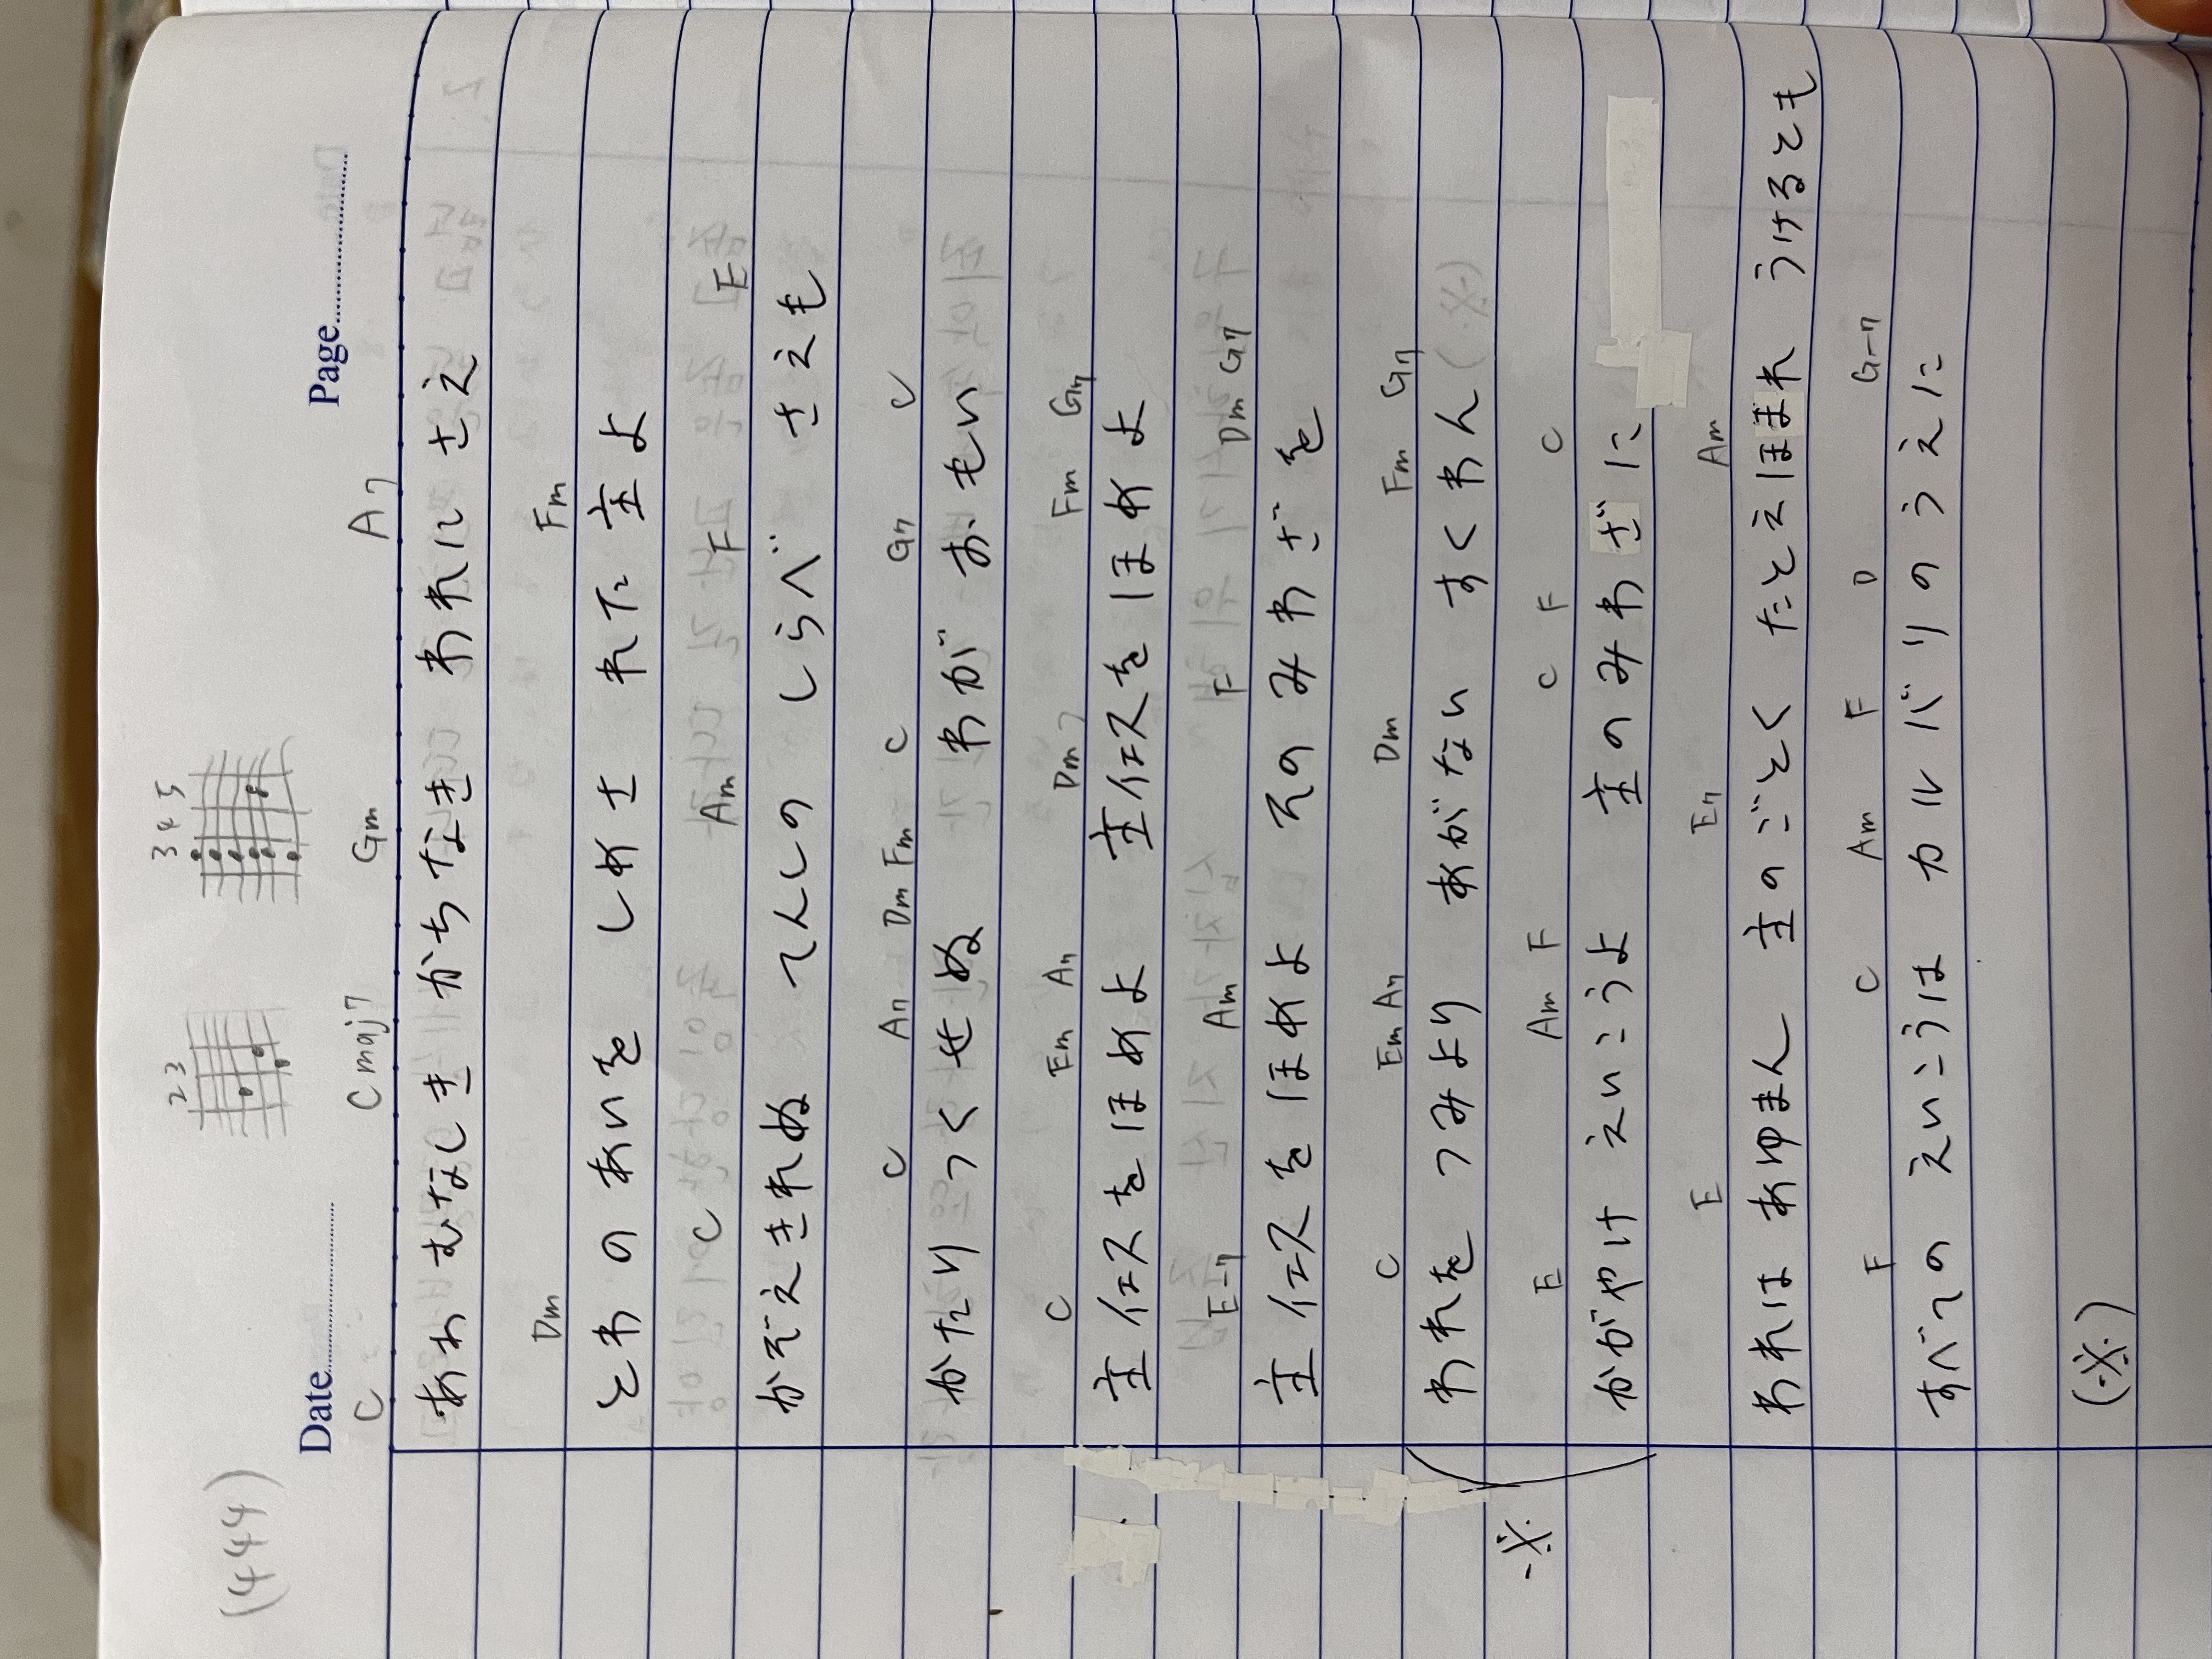 (444)
Date
Page
2 3
3 4 5
C Cmaj7 Gm A7
ああ むなしき かちなき われに さえ
Dm Fm
とわ の あいを しめさ れた 主よ
C Am F E
かぞえきれぬ てんしの しらべ さえも
C A7 Dm Fm C G7 C
かたり つくせぬ わが おもい
C Em A7 Dm7 Fm G7
主イエスを ほめよ 主イエスを ほめよ
E-7 Am F Dm G7
主イエスを ほめよ そのみわざを
C Em A7 Dm Fm G7
われを つみより あがない すくわん (※)
E Am F C F C
※ かがやけ えいこうよ 主のみわざに
E E7 Am
われは あゆまん 主のごとく たとえほまれ うけるとも
F C Am F D G-7
すべての えいこうは カルバリのうえに
(※)